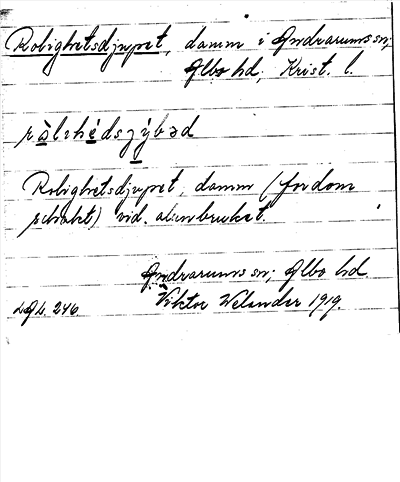 Rolighetsdjupet, damm i Andrarums sn;
Albo hd; Krist. l.
ràlihédsjýbəd
Rolighetsdjupet, damm (fordom
schakt) vid alunbruket.
Andrarums sn; Albo hd.
Viktor Welander 1919.
246.